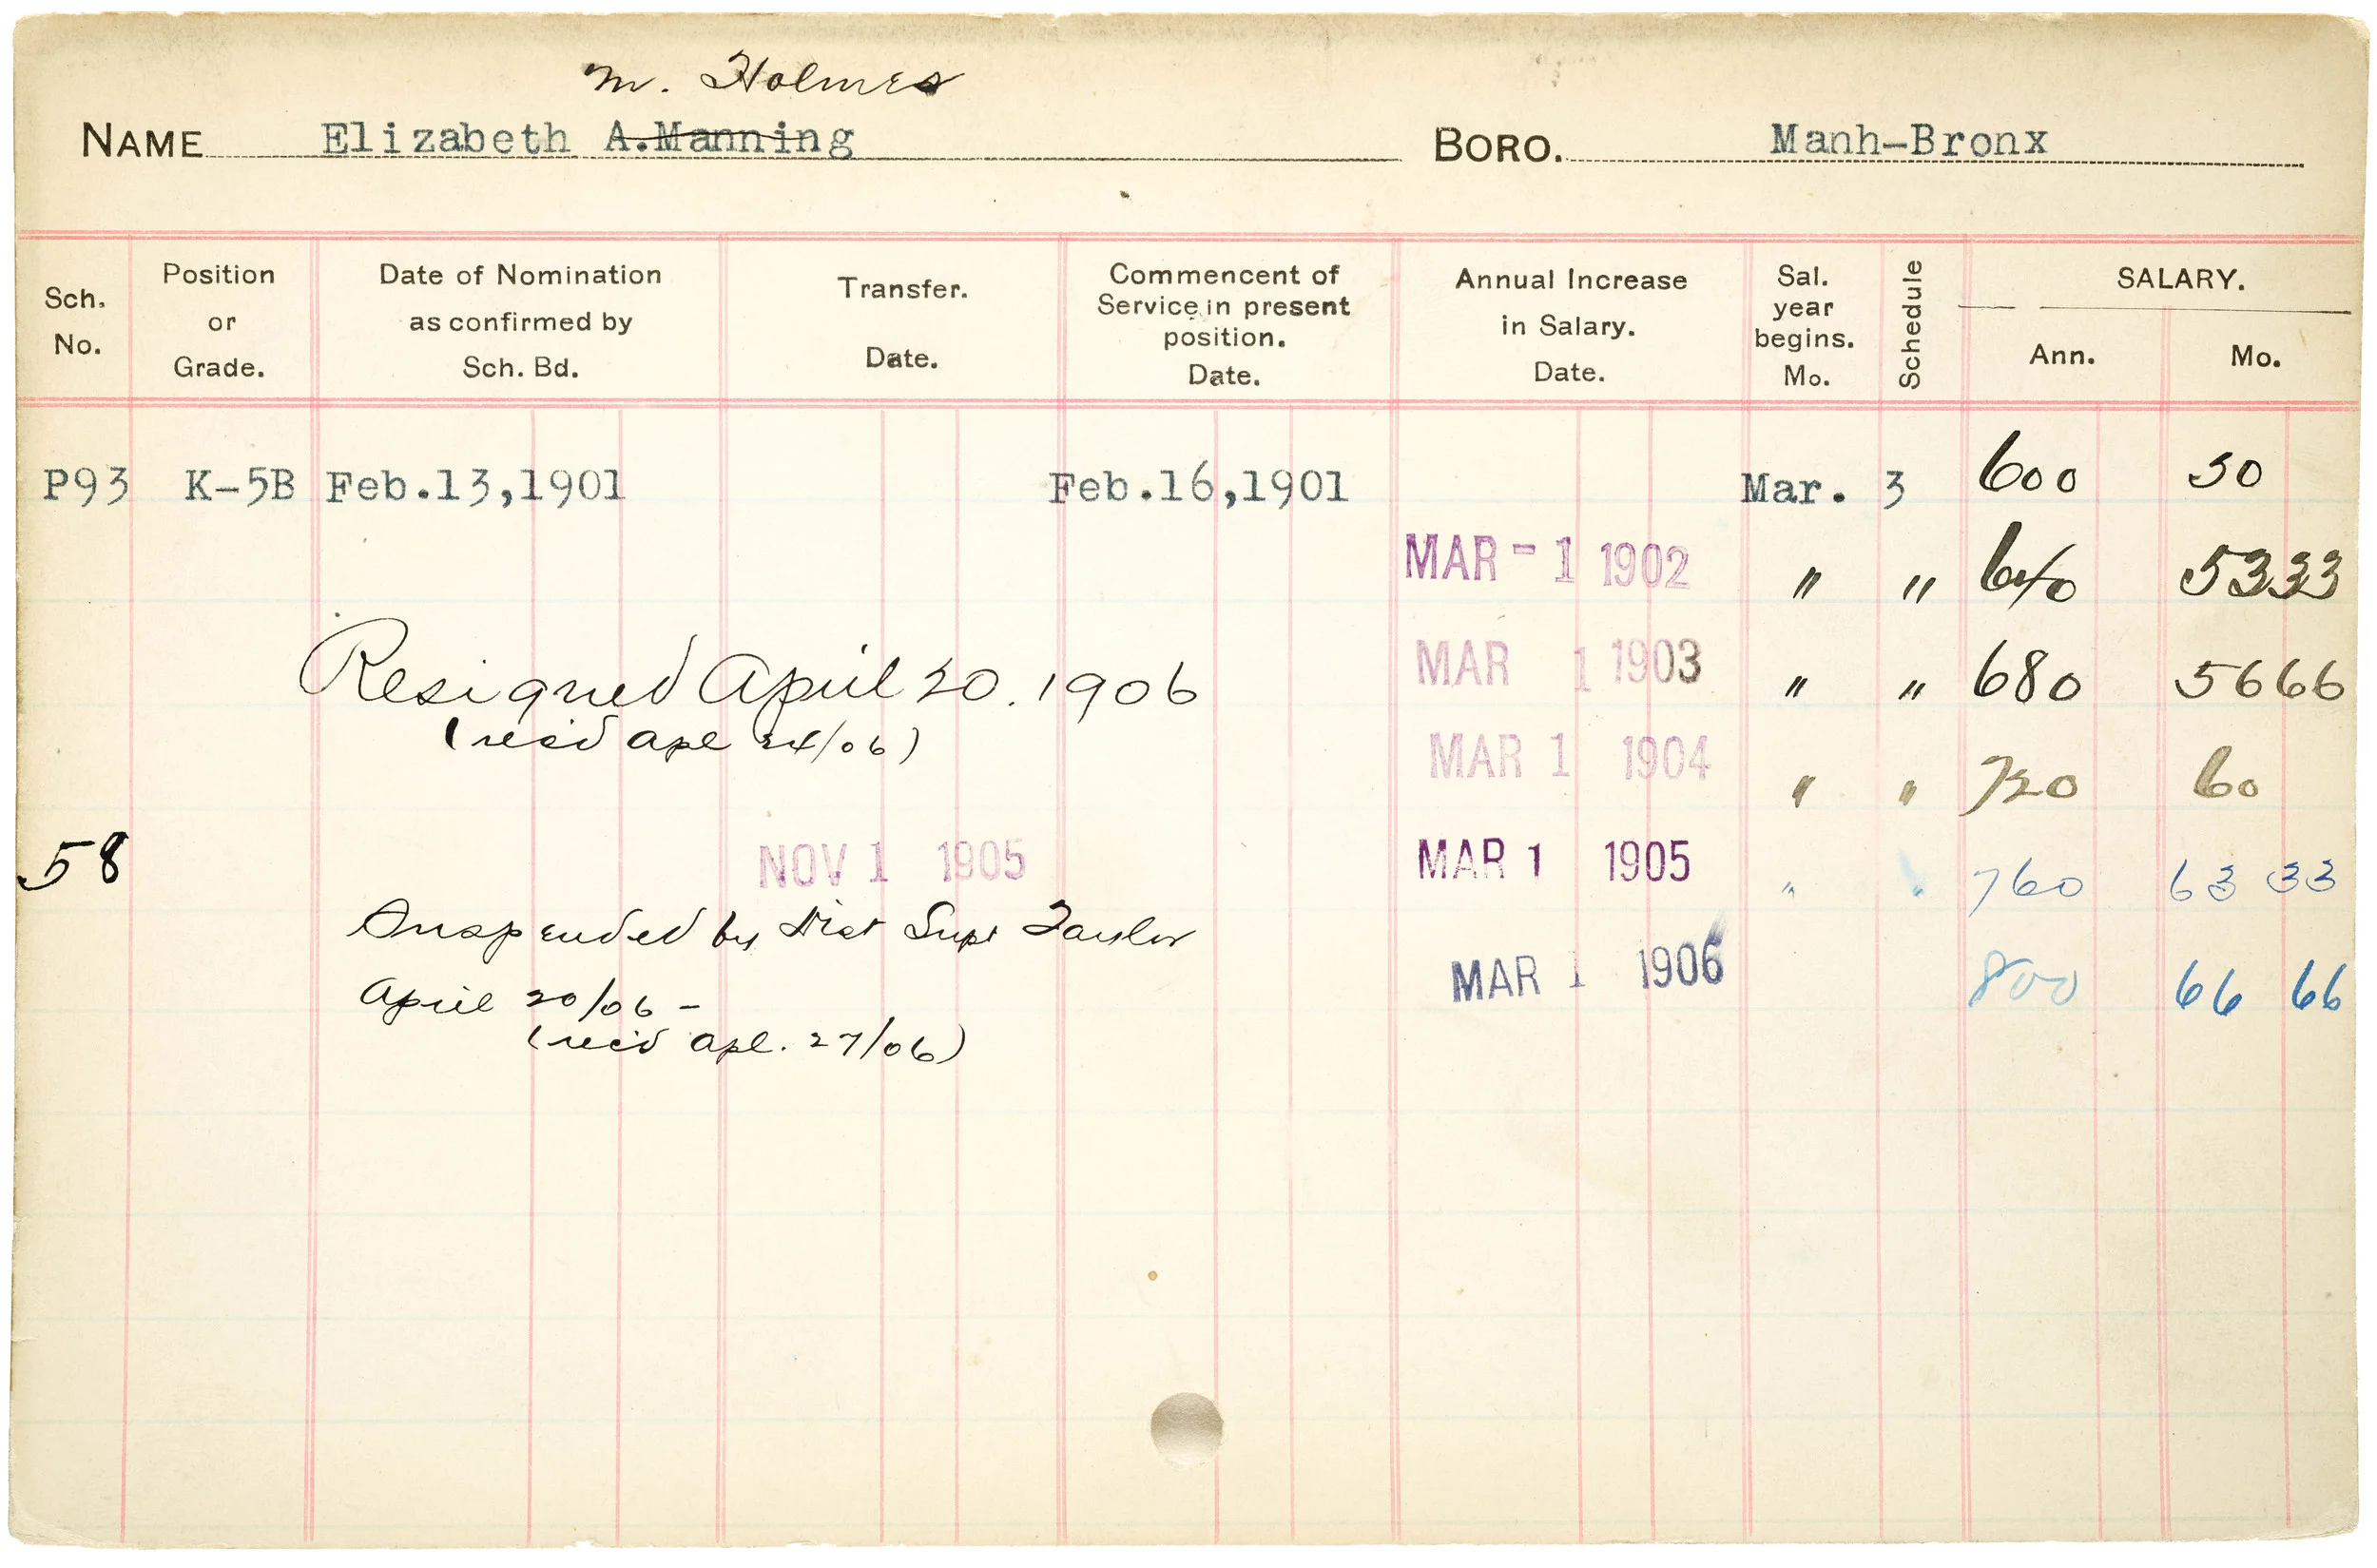 M. Holmes
NAME Elizabeth A. Manning BORO. Manh-Bronx
Sch. No. Position or Grade. Date of Nomination as confirmed by Sch. Bd. Transfer. Date. Commencent of Service in present position. Date. Annual Increase in Salary. Date. Sal. year begins. Mo. Schedule SALARY. Ann. Mo.
P93 K-5B Feb.13,1901 Feb.16,1901 Mar. 3 600 50
MAR - 1 1902 " " 640 5333
Resigned April 20. 1906 MAR 1 1903 " " 680 5666
(rec'd Apl 24/06) MAR 1 1904 " " 720 60
58 NOV 1 1905 MAR 1 1905 " " 760 63 33
Suspended by Dist Supt Taylor
MAR 1 1906 800 66 66
April 20/06 -
(rec'd Apl. 27/06)